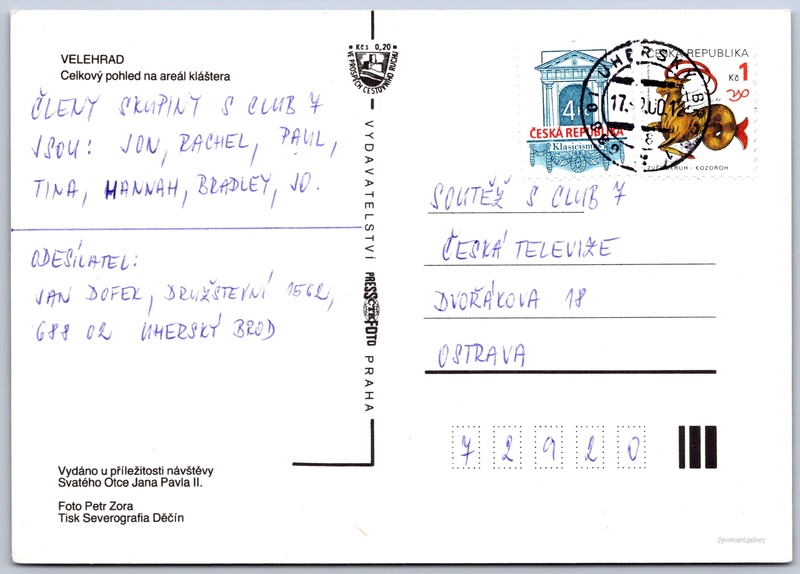 VELEHRAD
Celkový pohled na areál kláštera
ČLENY SKUPINY S CLUB 7
JSOU: JON, RACHEL, PAUL,
TINA, HANNAH, BRADLEY, JO.
ODESÍLATEL:
JAN DOFEK, DRUŽSTEVNÍ 1562,
688 02 UHERSKÝ BROD
Vydáno u příležitosti návštěvy
Svatého Otce Jana Pavla II.
Foto Petr Zora
Tisk Severografia Děčín
Kčs 0,20
VE PROSPĚCH CESTOVNÍHO RUCHU
VYDAVATELSTVÍ PRESSFOTO PRAHA
4
ČESKÁ REPUBLIKA
Klasicismus
ČESKÁ REPUBLIKA
Kč 1
KOZOROH
UHERSKÝ BROD
SOUTĚŽ S CLUB 7
ČESKÁ TELEVIZE
DVOŘÁKOVA 18
OSTRAVA
7 2 9 2 0
//postcard.gallery